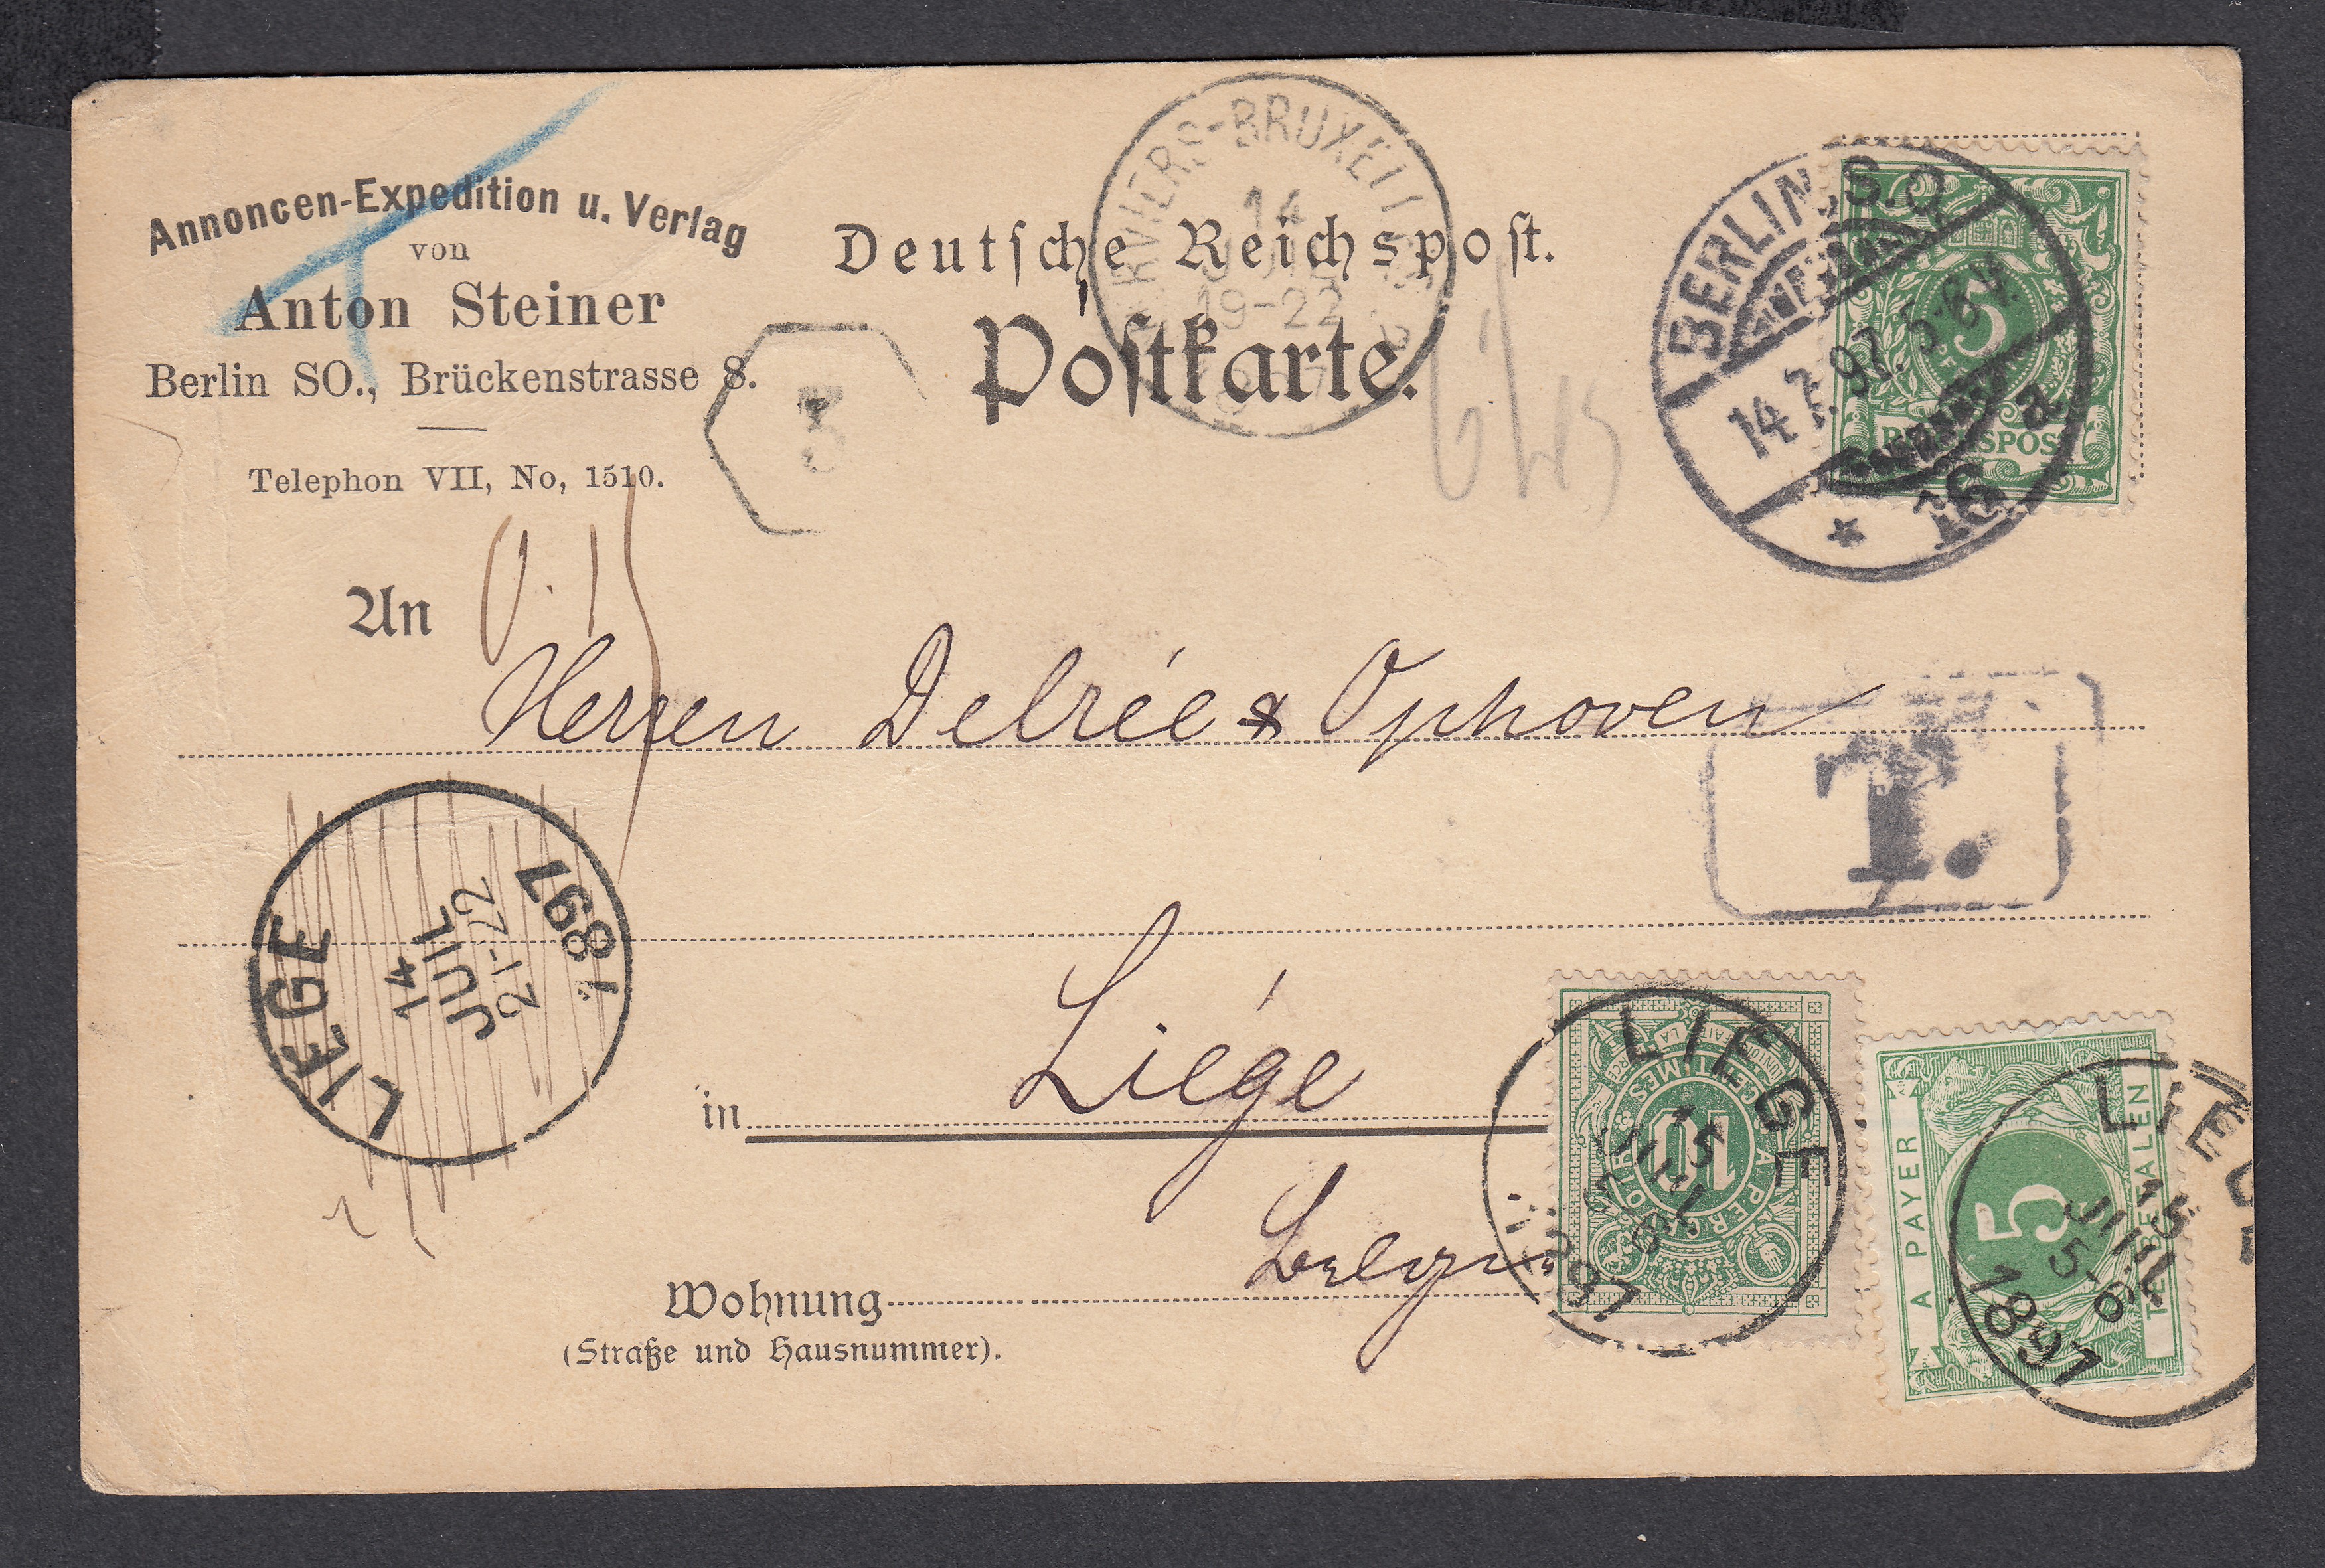 Annoncen-Expedition u. Verlag
von
Anton Steiner
Berlin SO., Brückenstrasse 8.
Telephon VII, No, 1510.
Deutsche Reichspost.
Postkarte.
VERVIERS-BRUXELLES
14
19-22
BERLIN, S.O.
14.7.97. 5-6 V.
* 16 a
5
REICHSPOST
3
An
0.15
Herren Delrée & Ophoven
T.
LIEGE
14
JUIL
21-22
1897
in Liége
Belgien
Wohnung
(Straße und Hausnummer).
10
CENTIMES
A PERCEVOIR
LIEGE
15
JUIL
5-6
1897
A PAYER
5
TE BETALEN
LIEGE
15
JUIL
5-6
1897